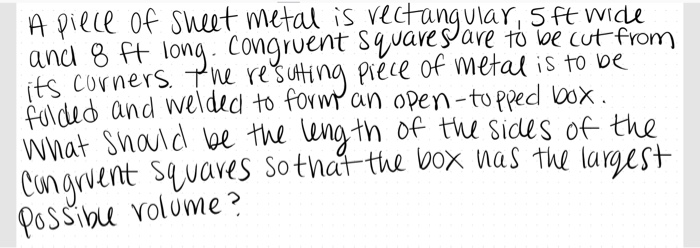 A piece of sheet metal is rectangular, 5 ft wide
and 8 ft long. Congruent squares are to be cut from
its corners. The resulting piece of metal is to be
folded and welded to form an open-topped box.
What should be the length of the sides of the
Congruent squares so that the box has the largest
possible volume?